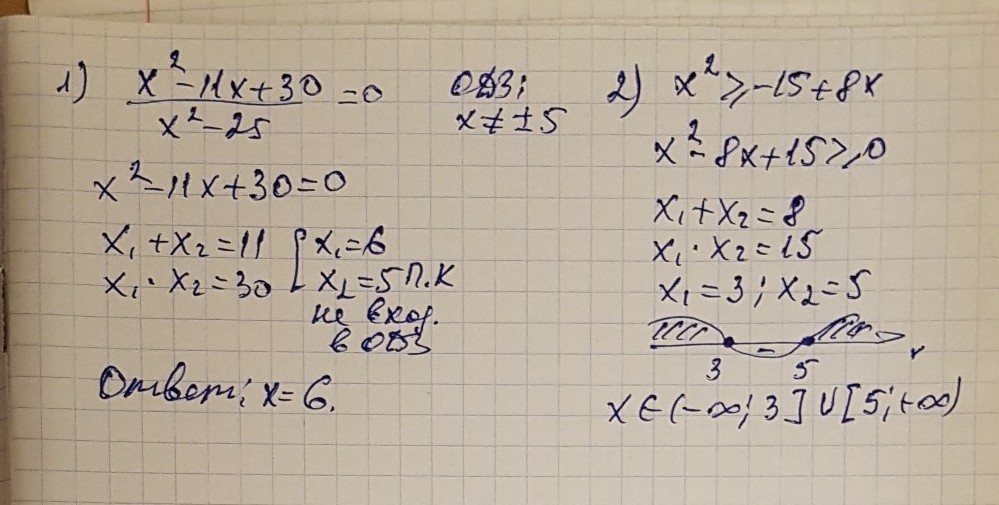 1) x²-11x+30 / x²-25 =0 ОДЗ:
x≠±5
x²-11x+30=0
x₁+x₂=11 [x₁=6
x₁·x₂=30 x₂=5 П.К
не вход.
в ОДЗ
Ответ: x=6.
2) x²≥-15+8x
x²-8x+15≥0
x₁+x₂=8
x₁·x₂=15
x₁=3; x₂=5
- x
3 5
x∈(-∞;3]∪[5;+∞)